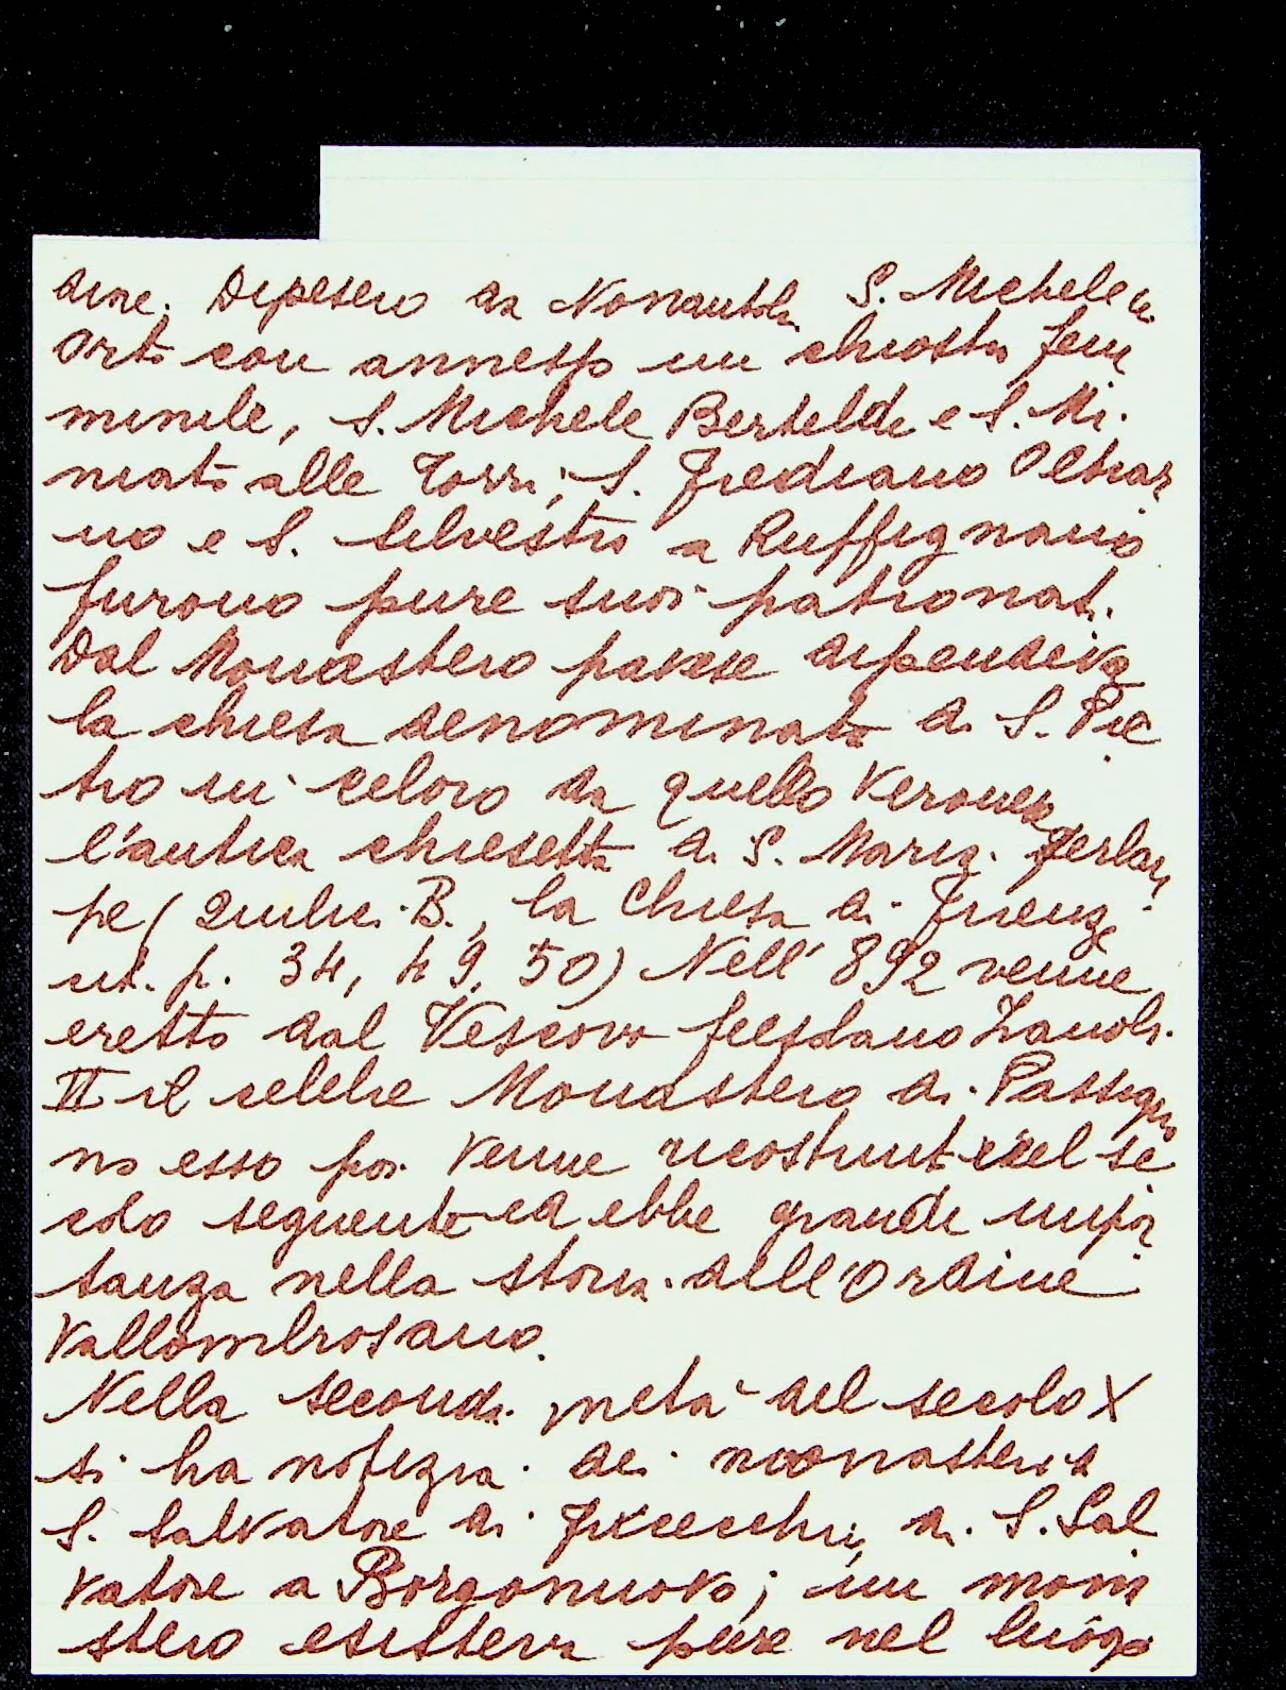 dine. Dipesero da Nonantola S. Michele in
Orto con annesso un chiostro fem
minile, S. Michele Bertelde e S. Mi.
niato alle Torri; S. Frediano Oltrar
no e S. Silvestro a Ruffignano
furono pure suoi patronati.
Dal Monastero pavese dipendeva
la chiesa denominata di S. Pie
tro in celoro da quello Veronese
l'antica chiesetta di S. Maria Ferlau
pe ( Quilici B., la Chiesa di Firenze
cit. p. 34, 49, 50) Nell' 892 venne
eretto dal Vescovo Zanobi
II il celebre Monastero di Passigna
no esso poi venne ricostruito nel se
colo seguente ed ebbe grande impor
tanza nella storia dell'Ordine
Vallombrosano.
Nella seconda metà del secolo X
si ha notizia dei monasteri di
S. Salvatore di Fucecchio, di S. Sal
vatore a Borgonuovo; un mona
stero esisteva pure nel luogo